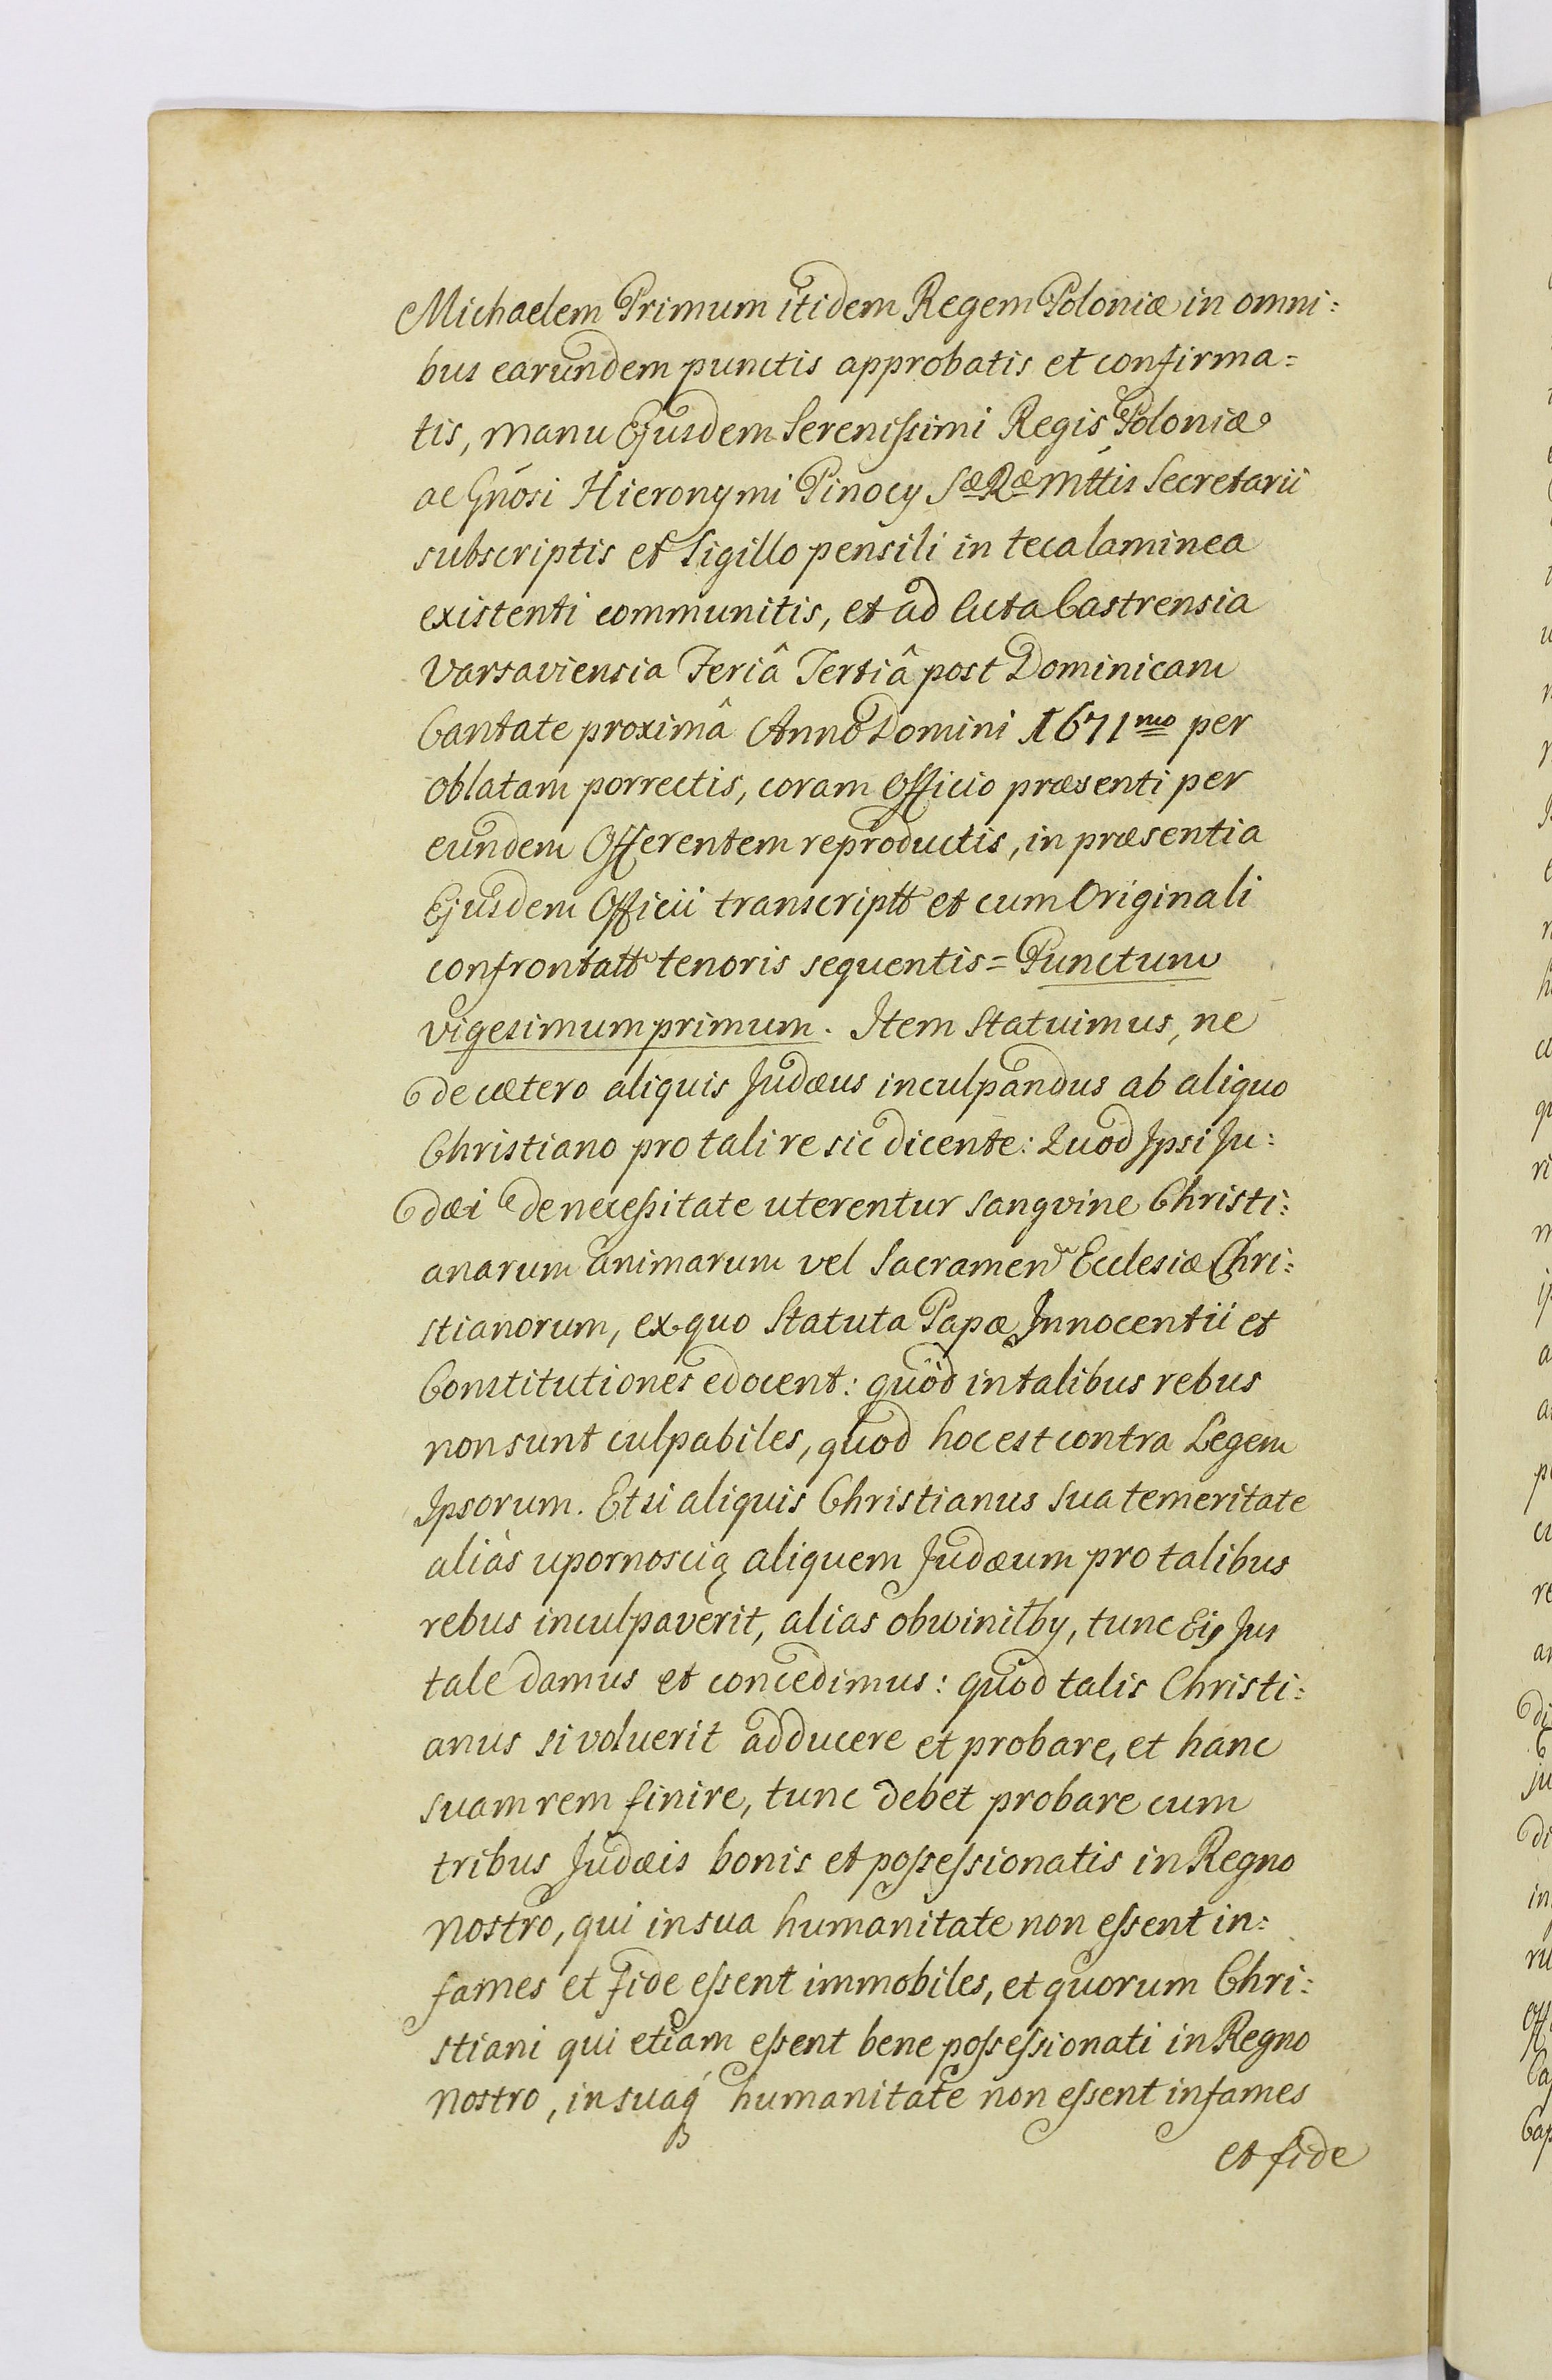 Michaelem Primum itidem Regem Poloniæ in omni:
bus earundem punctis approbatis et confirma=
tis, manu Ejusdem Serenissimi Regis Poloniæ
ac Gnosi Hieronymi Pinocy Sæ Ræ Mttis Secretarii
subscriptis et Sigillo pensili in teca laminea
existenti communitis, et ad Acta Castrensia
Varsaviensia Feriâ Tertiâ post Dominicam
Cantate proximâ Anno Domini 1671mo per
oblatam porrectis, coram Officio præsenti per
eundem Offerentem reproductis, in præsentia
Ejusdem Officii transcriptt et cum Originali
confrontatt tenoris sequentis = Punctum
vigesimum primum. Item Statuimus, ne
de cætero aliquis Judæus inculpandus ab aliquo
Christiano pro tali re sic dicente: Quod Ipsi Ju:
dæi de necessitate uterentur sangvine Christi:
anarum animarum vel Sacramen Ecclesiæ Chri:
stianorum, ex quo Statuta Papæ Innocentii et
Constitutiones edocent: quod in talibus rebus
non sunt culpabiles, quod hoc est contra Legem
Ipsorum. Et si aliquis Christianus sua temeritate
aliàs upornoscią aliquem Judæum pro talibus
rebus inculpaverit, alias obwiniłby, tunc Eis Jus
tale damus et concedimus: quod talis Christi:
anus si voluerit adducere et probare, et hanc
suam rem finire, tunc debet probare cum
tribus Judæis bonis et possessionatis in Regno
nostro, qui in sua humanitate non essent in:
fames et fide essent immobiles, et quorum Chri:
stiani qui etiam essent bene possessionati in Regno
nostro, in suaq humanitate non essent infames
et fide